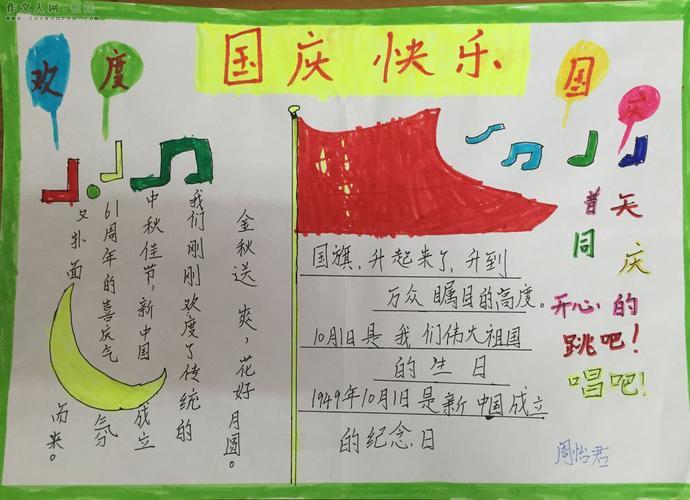 作文人网·板报
www.zuowenren.com
国庆快乐
欢度
国庆
金秋送爽，花好月圆。
我们刚刚欢度了传统的
中秋佳节，新中国成立
61周年的喜庆气氛
又扑面而来。
国旗，升起来了，升到
万众瞩目的高度。
10月1日是我们伟大祖国
的生日
1949年10月1日是新中国成立
的纪念日
普天同庆
开心的
跳吧！
唱吧！
周怡君